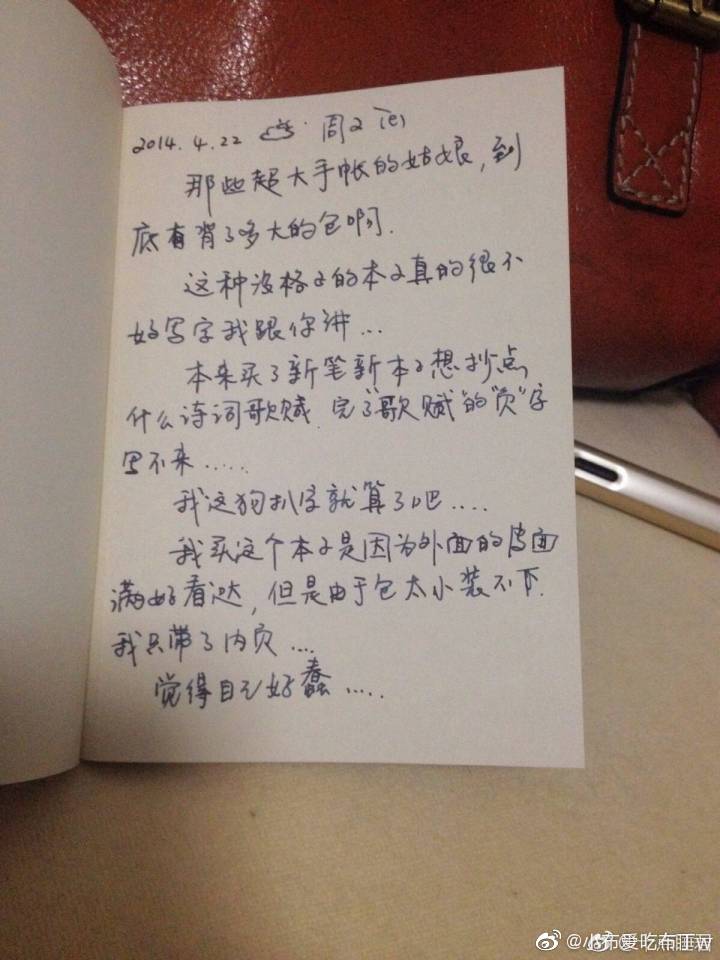 2014.4.22 周2
那些超大手帐的姑娘,到
底有背了多大的包啊.
这种没格子的本子真的很不
好写字我跟你讲...
本来买了新笔新本子想抄点
什么诗词歌赋.完了"歌赋"的"贝"字
写不来.....
我这狗扒字就算了吧....
我买这个本子是因为外面的皮面
满好看哒,但是由于包太小装不下.
我只带了内页....
觉得自己好蠢.....